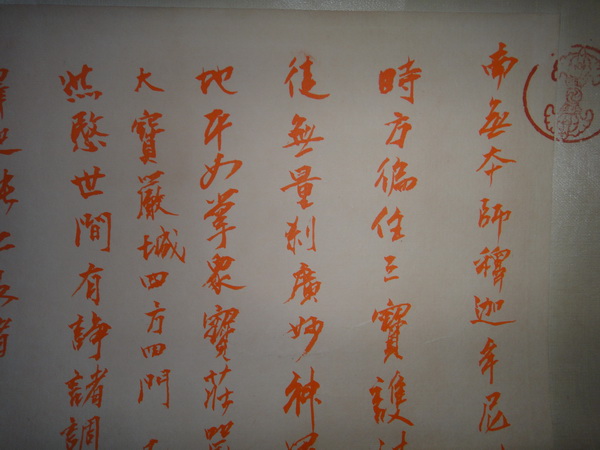 南無本師釋迦牟尼
時方徧住三寶護
從無量剎廣妙神
地平如掌眾寶莊
大寶嚴城四方四門
愍世間有諍諸調